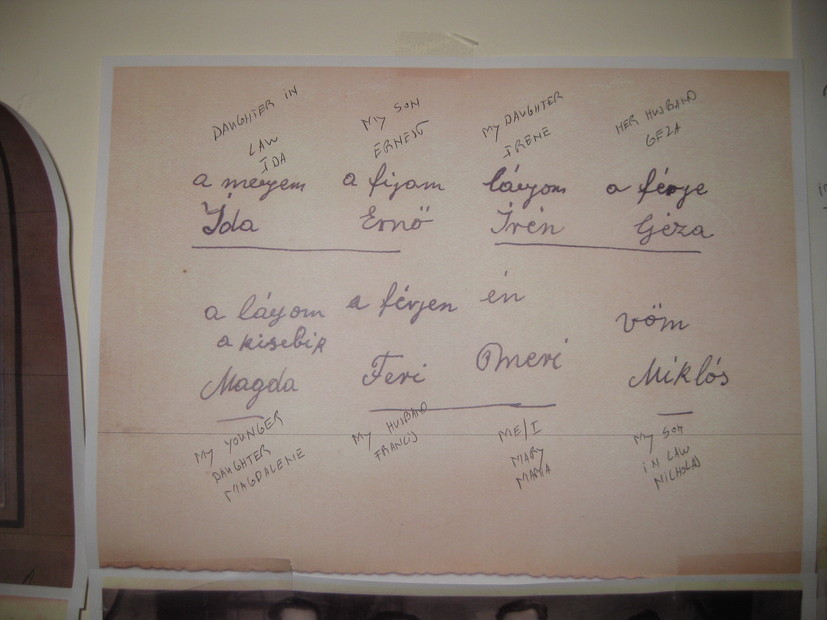 DAUGHTER IN
LAW
IDA
MY SON
ERNEST
MY DAUGHTER
IRENE
HER HUSBAND
GEZA
a menyem
a fijam
lányom
a férje
Ída
Ernő
Írén
Géza
a lányom
a kisebik
a férjem
én
vöm
Magda
Feri
Omeri
Miklós
MY YOUNGER
DAUGHTER
MAGDALENE
MY HUSBAND
FRANCIS
ME/I
MARY
MARIA
MY SON
IN LAW
NICHOLAS